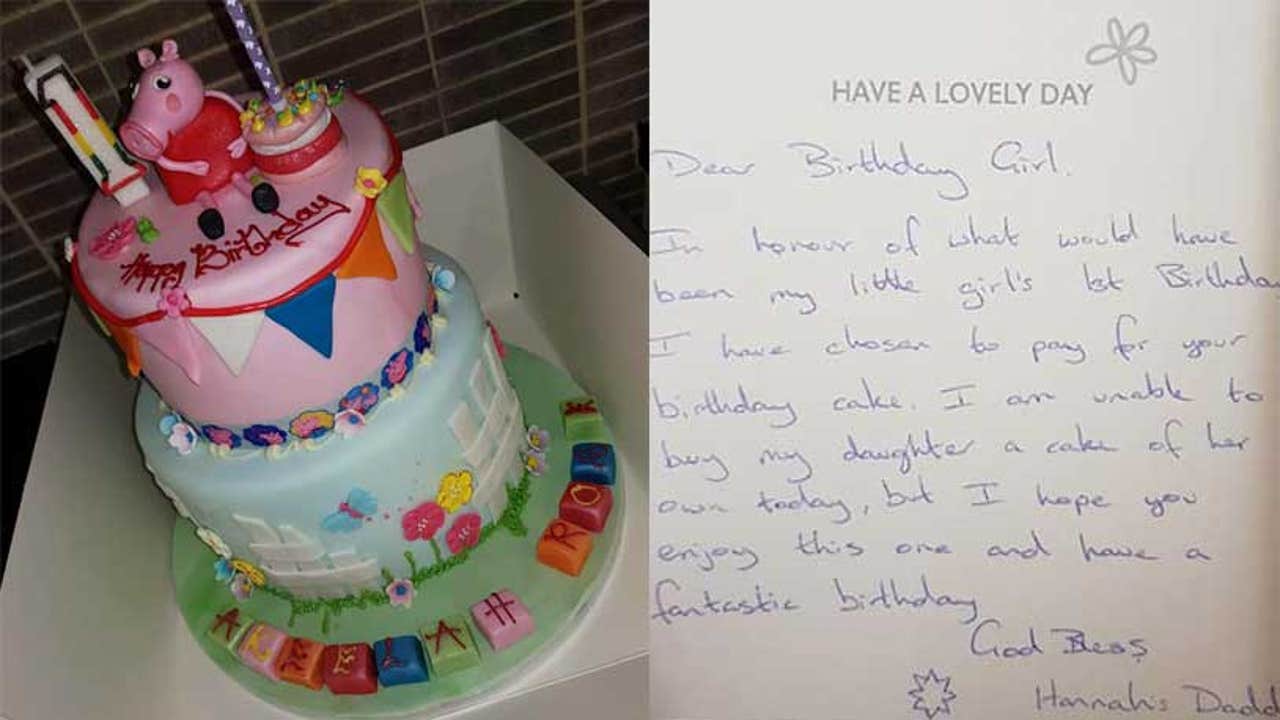 Happy Birthday
HAVE A LOVELY DAY
Dear Birthday Girl.
In honour of what would have
been my little girl's 1st Birthda
I have chosen to pay for your
birthday cake. I am unable to
buy my daughter a cake of her
own today, but I hope you
enjoy this one and have a
fantastic birthday
God Bless
Hannah's Dadd